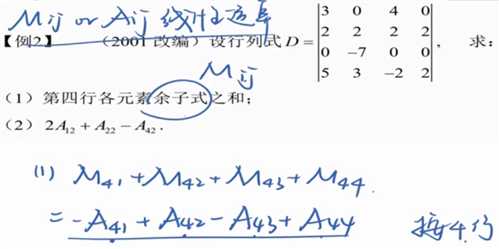 Mij or Aij 线性运算
【例2】 (2001 改编) 设行列式 D = |3 0 4 0| , 求:
|2 2 2 2|
|0 -7 0 0|
|5 3 -2 2|
Mij
(1) 第四行各元素余子式之和;
(2) 2A₁₂ + A₂₂ − A₄₂ .
(1) M₄₁ + M₄₂ + M₄₃ + M₄₄.
= -A₄₁ + A₄₂ - A₄₃ + A₄₄ 按4行